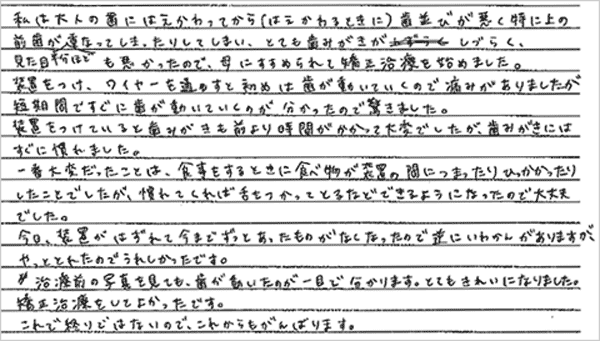 私は大人の歯にはえかわってから(はえかわるときに)歯並びが悪く特に上の
前歯が重なってしまったりしてしまい、とても歯みがきがしづらく、
見た目もも悪かったので、母にすすめられて矯正治療を始めました。
装置をつけ、ワイヤーを通すと初めは歯が動いていくので痛みがありましたが
短期間ですぐに歯が動いていくのが分かったので驚きました。
装置をつけていると歯みがきも前より時間がかかって大変でしたが、歯みがきには
すぐに慣れました。
一番大変だったことは、食事をするときに食べ物が装置の間につまったりひっかかったり
したことでしたが、慣れてくれば舌をつかってとるなどできるようになったので大丈夫
でした。
今日、装置がはずれて今までずっとあったものがなくなったので逆にいわかんがありますが、
やっととれたのでうれしかったです。
治療前の写真を見ても、歯が動いたのが一目で分かります。とてもきれいになりました。
矯正治療をしてよかったです。
これで終りではないので、これからもがんばります。